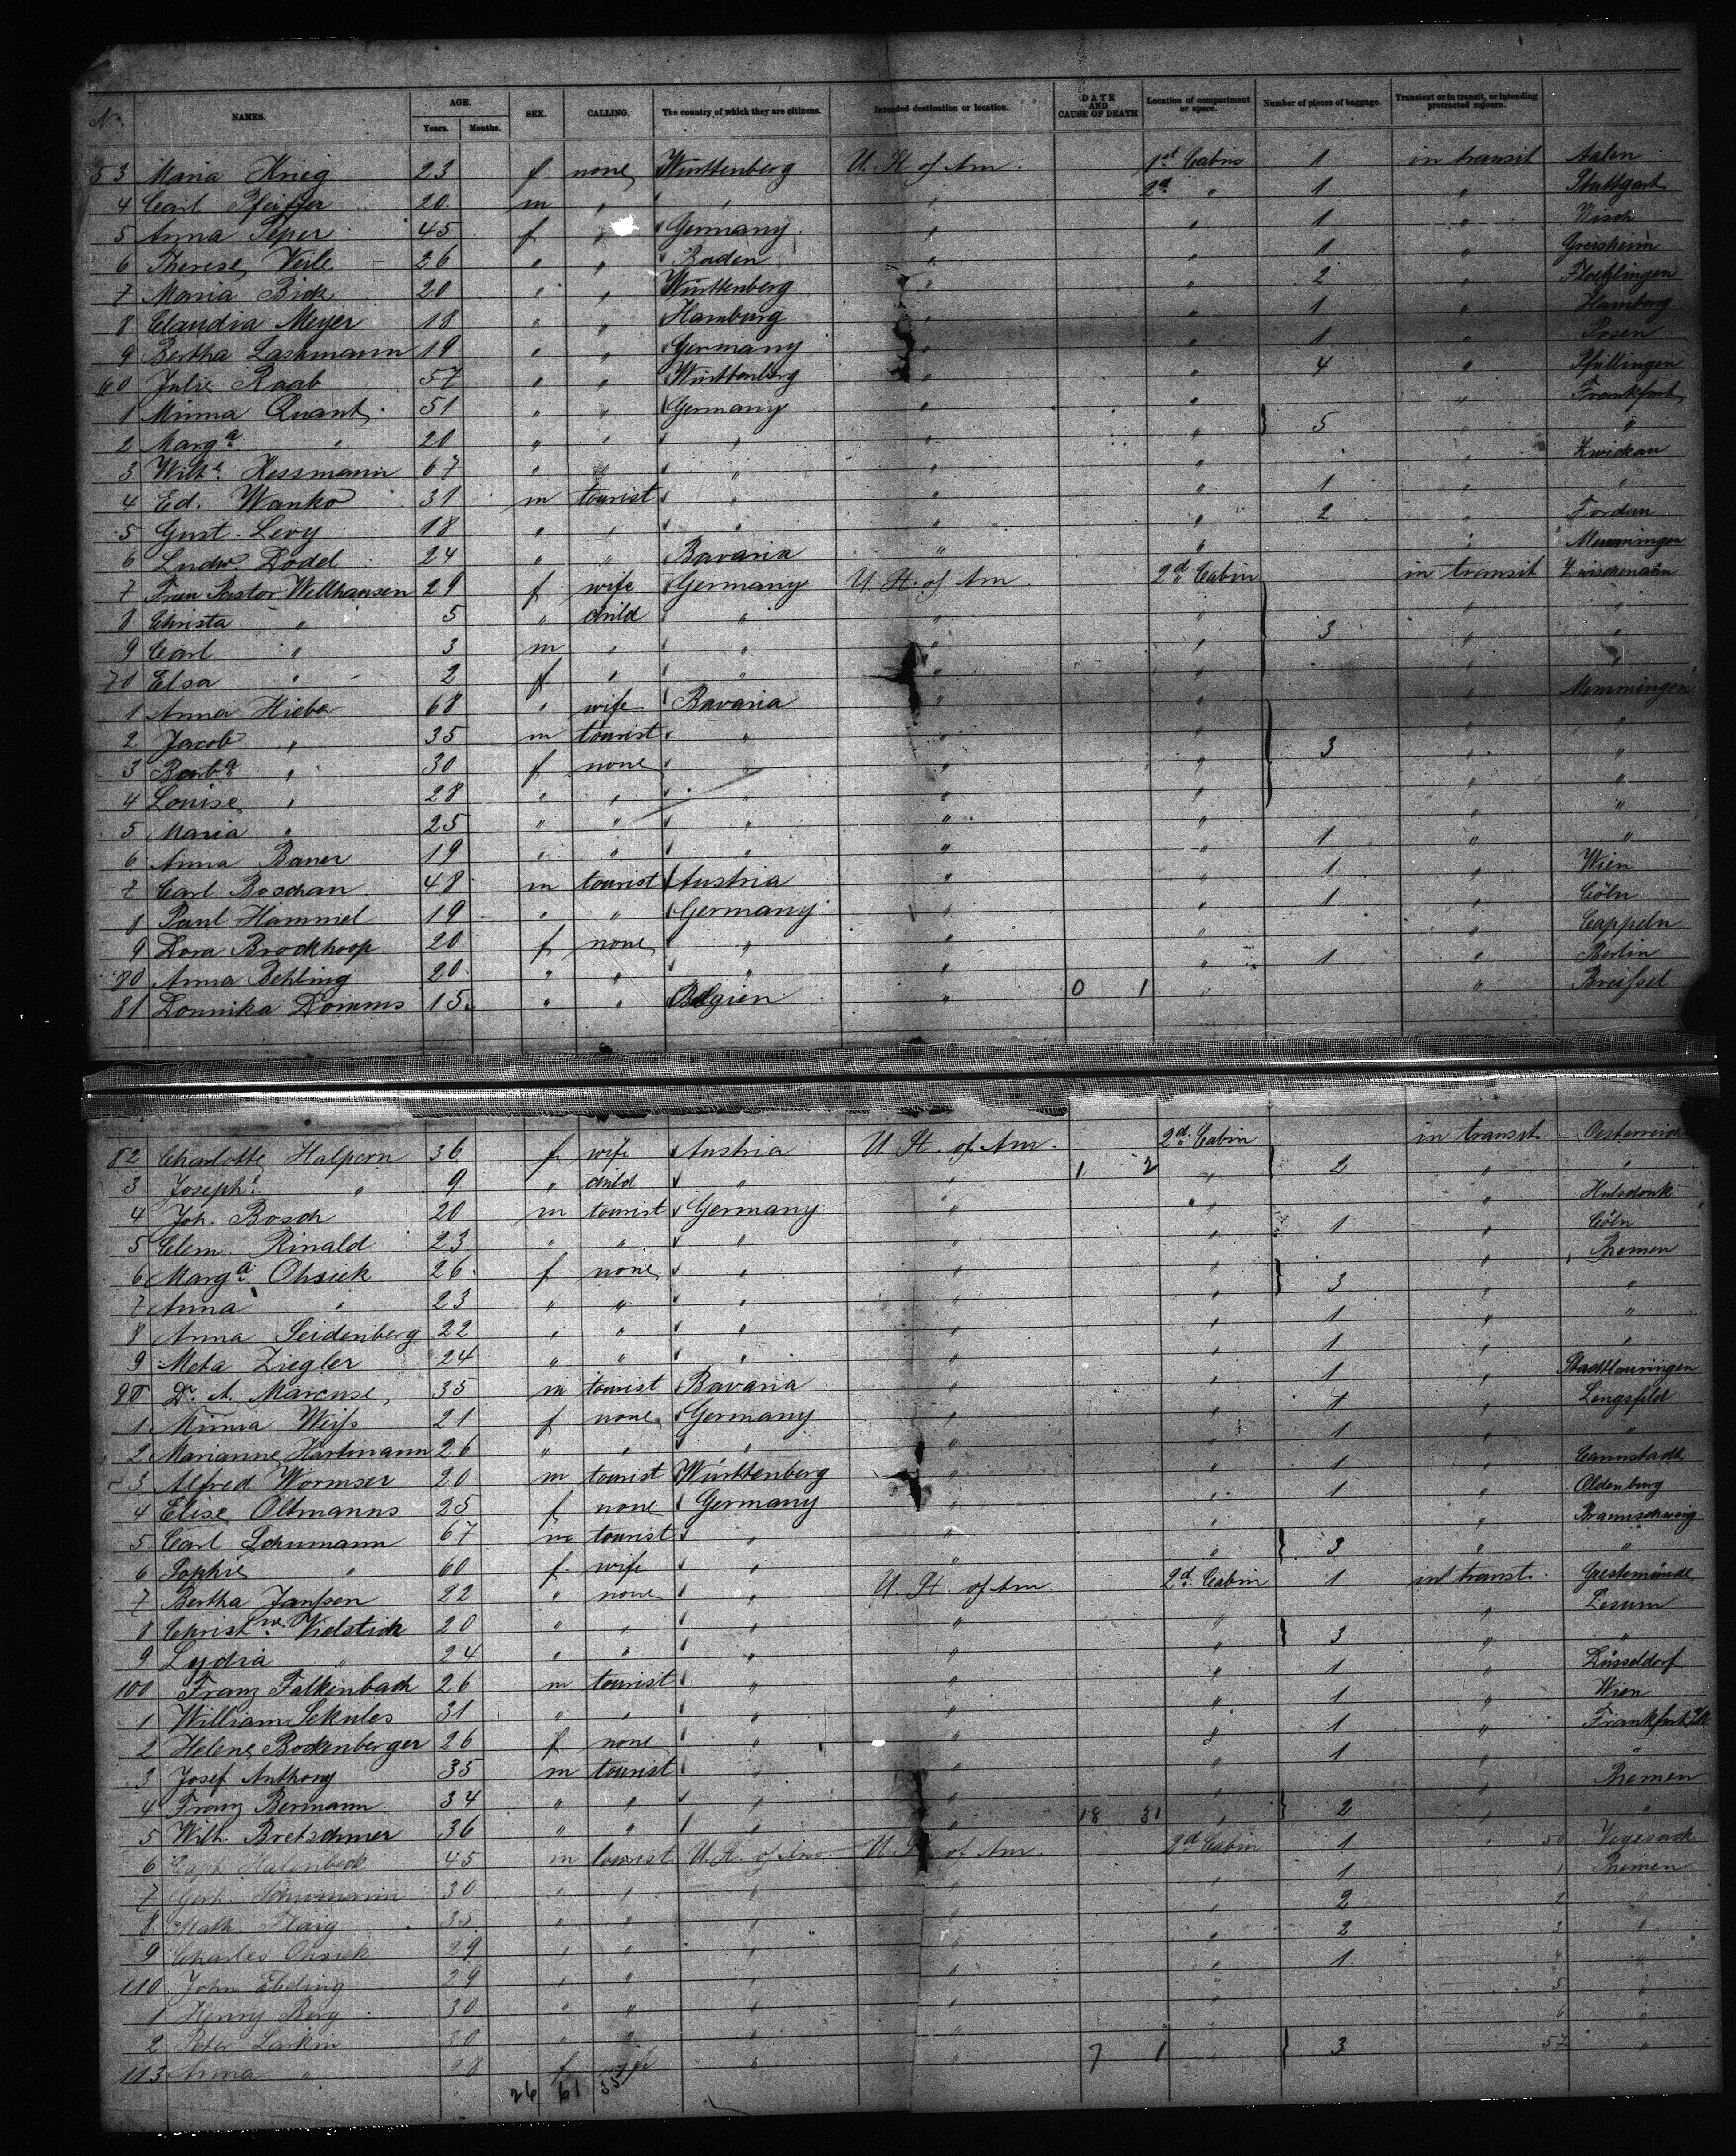 No. NAMES. AGE. SEX. CALLING. The country of which they are citizens. Intended destination or location. DATE AND CAUSE OF DEATH Location of compartment or space. Number of pieces of baggage. Transient or in transit, or intending protracted sojourn.
Years. Months.
53 Maria Krieg 23 f none Württenberg U. St. of Am. 1st Cabin 1 in transit Aalen
4 Carl Pfeiffer 20 m " " " 2d " 1 " Stuttgart
5 Anna Peper 45 f " Germany " " 1 " Visch
6 Therese Veile 26 " " Baden " " 1 " Greisheim
7 Maria Bick 20 " " Württenberg " " 2 "
8 Claudia Meyer 18 " " Hamburg " " 1 " Hamburg
9 Bertha Lashmann 19 " " Germany " " 1 " Posen
60 Julie Raab 57 " " Württenberg " " 4 " Pfullingen
1 Minna Quant 51 " " Germany " " 5 " Frankfurt
2 Marga " 20 " " " " " " "
3 Wilhe Hessmann 67 " " " " " " Zwickau
4 Ed. Wanko 31 m tourist " " " 1 " "
5 Gust. Levy 18 " " " " " 2 " Fordan
6 Ludw. Dodel 24 " " Bavaria " " " Memmingen
7 Frau Pastor Wellhausen 29 f wife Germany U. St. of Am 2d Cabin in transit Zwischenahn
8 Christa " 5 " child " " " 3 " "
9 Carl " 3 m " " " " " "
70 Elsa " 2 f " " " " " "
1 Anna Hieber 68 " wife Bavaria " " " Memmingen
2 Jacob " 35 m tourist " " " 3 " "
3 Barba " 30 f none " " " " "
4 Louise " 28 " " " " " " "
5 Maria " 25 " " " " " " "
6 Anna Baner 19 " " " " " 1 " "
7 Carl Boschan 48 m tourist Austria " " 1 " Wien
8 Paul Hammel 19 " " Germany " " 1 " Cöln
9 Dora Brockhoop 20 f none " " " " Cappeln
80 Anna Behling 20 " " " " " 1 " Berlin
81 Donnika Domms 15 " " Belgien " 0 1 " " Breißel
82 Charlotte Halpern 36 f wife Austria U. St. of Am. 2d Cabin in transit Oesterreich
3 Josephe " 9 " child " " 1 2 " 2 " "
4 Joh. Bosch 20 m tourist Germany " " " Hulsdonk
5 Clem. Rinald 23 " " " " " 1 " Cöln
6 Marga Ohsiek 26 f none " " " 3 " Bremen
7 Anna " 23 " " " " " " "
8 Anna Seidenberg 22 " " " " " 1 " "
9 Meta Ziegler 24 " " " " " 1 " "
90 Dr. A. Marcuse 35 m tourist Bavaria " " 1 " Stadtlauringen
1 Minna Weiß 21 f none Germany " " 1 " Lengsfeld
2 Marianne Hartmann 26 " " " " " 1 " "
3 Alfred Wormser 20 m tourist Württenberg " " 1 " Cannstadt
4 Elise Oltmanns 25 f none Germany " " 1 " Oldenburg
5 Carl Schumann 67 m tourist " " " 3 " Braunschweig
6 Sophie " 60 f wife " " " " "
7 Bertha Janßen 22 " none " U. St. of Am. 2d Cabin 1 in transt. Geestemünde
8 Christne Vielstich 20 " " " " " 3 " Lesum
9 Lydia " 24 " " " " " " "
100 Franz Falkinbach 26 m tourist " " " 1 " Düsseldorf
1 William Sekules 31 " " " " " 1 " Wien
2 Helene Bodenberger 26 f none " " " 1 " Frankfurt
3 Josef Anthony 35 m tourist " " " 1 " "
4 Franz Bermann 34 " " " " " 2 " Bremen
5 Wilh. Bretschmer 36 " " " " 18 31 " " "
6 Caph. Halenbeck 45 m tourist U. St. of Am. U. St. of Am 2d Cabin 1 " 50 Vegesack
7 Gerh. Schumann 30 " " " " " 1 1 Bremen
8 Math. Flaig 35 " " " " " 2 2 "
9 Charles Ohsiek 29 " " " " " 2 3 "
110 John Ebeling 29 " " " " " 1 4 "
1 Henry Berg 30 " " " " " 5 "
2 Peter Larkin 30 " " " " " 3 6 "
113 Anna " 28 f wife " " 7 1 " 57 "
26 61 35